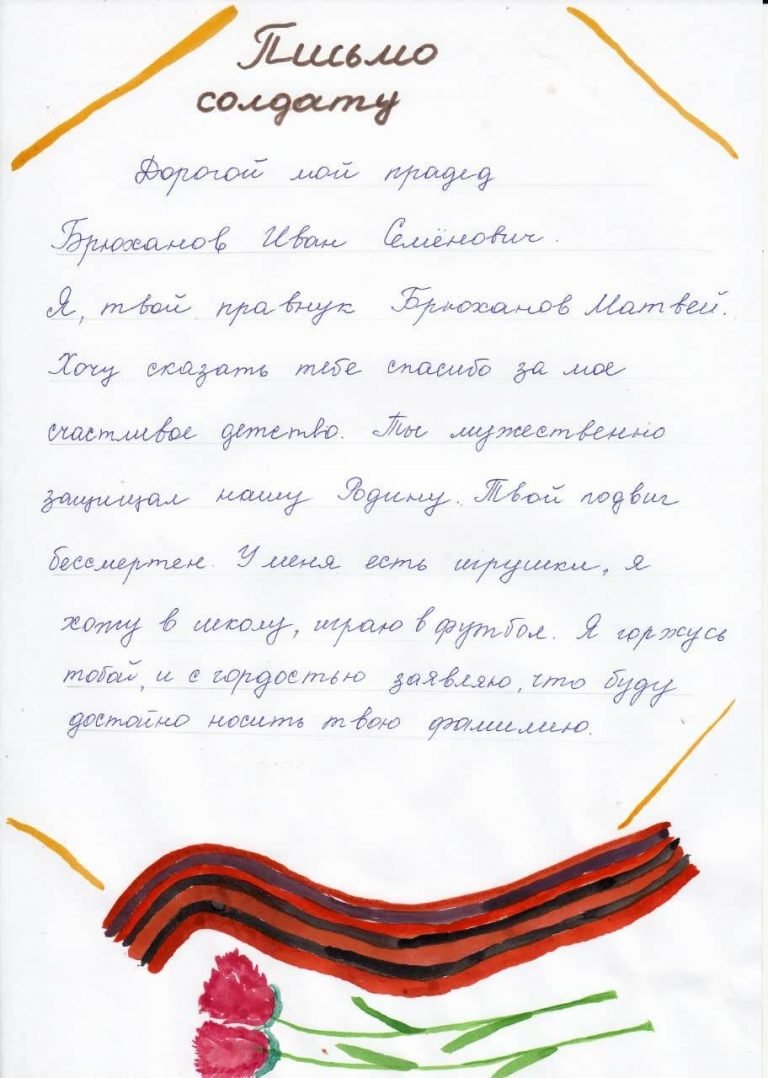 Письмо
солдату
Дорогой мой прадед
Брюханов Иван Семёнович.
Я, твой правнук Брюханов Матвей.
Хочу сказать тебе спасибо за мое
счастливое детство. Ты мужественно
защищал нашу Родину. Твой подвиг
бессмертен. У меня есть игрушки, я
хожу в школу, играю в футбол. Я горжусь
тобой, и с гордостью заявляю, что буду
достойно носить твою фамилию.